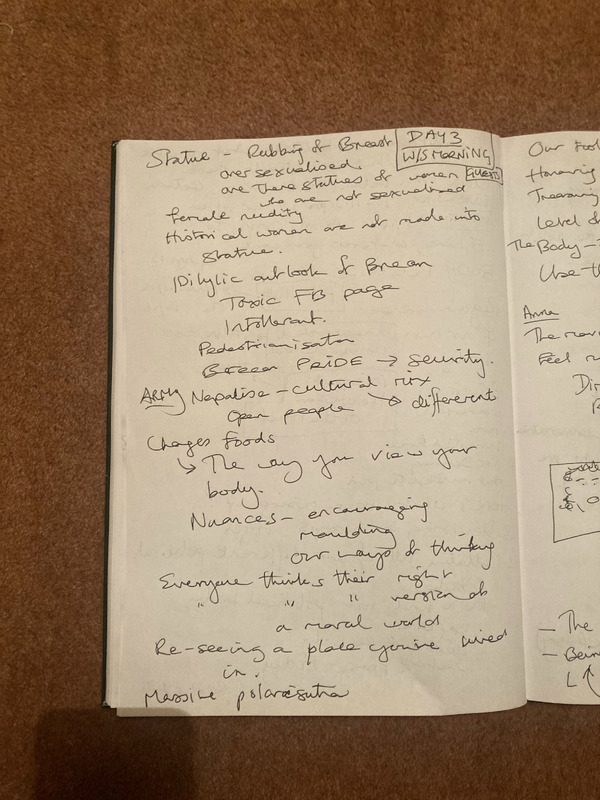 Statue - Rubbing of Breast
DAY 3
W/S MORNING
GUESTS
over sexualised.
are there statues of women
who are not sexualised
female nudity
Historical women are not made into
statue.
Idilylic outlook of Brecon
Toxic FB page
Intollerant.
Pedestrianisation
Brecon PRIDE → security.
ARMY Nepalise - cultural mix
Open people → different
Changes foods
↳ The way you view your
body.
Nuances - encouraging
moulding
our ways of thinking
Everyone thinks their right
" " " version of
a moral world
Re-seeing a place you've lived
in.
Massive polarisation
Our
Honouring
Level
The Body -
Use
Anna
The
Feel
- The
- Being
L ↑